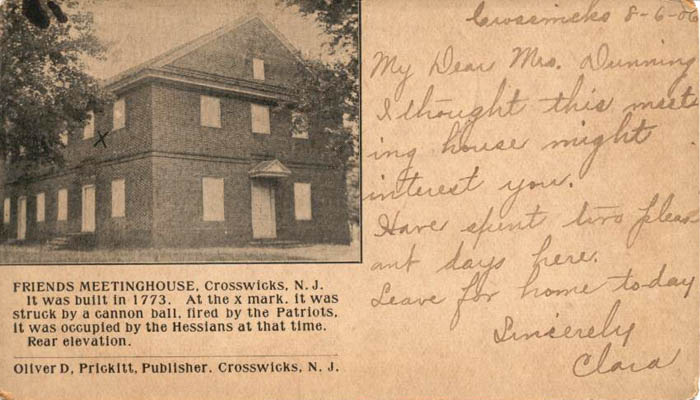 FRIENDS MEETINGHOUSE, Crosswicks, N. J.
It was built in 1773. At the x mark, it was
struck by a cannon ball, fired by the Patriots,
it was occupied by the Hessians at that time.
Rear elevation.
Oliver D, Prickitt, Publisher. Crosswicks, N. J.
X
Crosswicks 8-6-06
My Dear Mrs. Dunning
I thought this meet
ing house might
interest you.
Have spent two pleas
ant days here.
Leave for home today
Sincerely
Clara